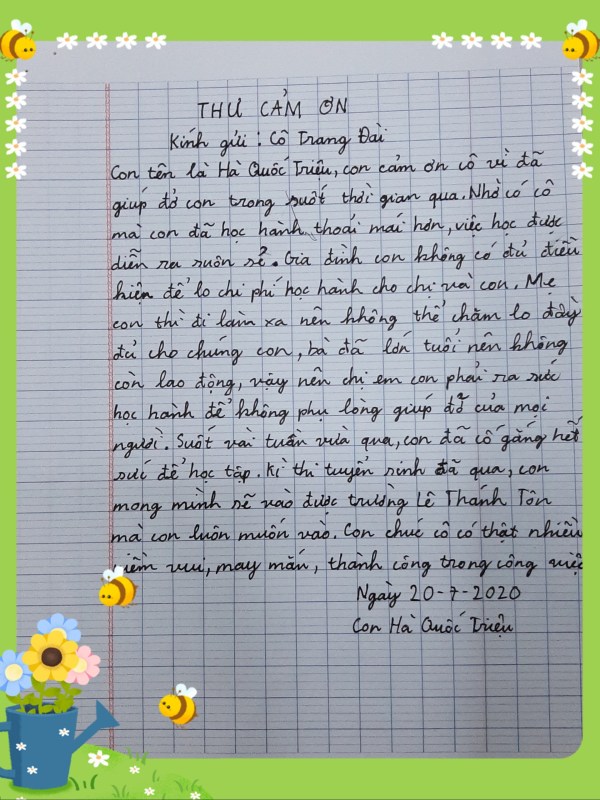 THƯ CẢM ƠN
Kính gửi : Cô Trang Đài
Con tên là Hà Quốc Triệu, con cảm ơn cô vì đã
giúp đỡ con trong suốt thời gian qua. Nhờ có cô
mà con đã học hành thoái mái hơn, việc học được
diễn ra suôn sẻ. Gia đình con không có đủ điều
kiện để lo chi phí học hành cho chị và con. Mẹ
con thì đi làm xa nên không thể chăm lo đầy
đủ cho chúng con, bà đã lớn tuổi nên không
còn lao động, vậy nên chị em con phải ra sức
học hành để không phụ lòng giúp đỡ của mọi
người. Suốt vài tuần vừa qua, con đã cố gắng hết
sức để học tập. Kì thi tuyển sinh đã qua, con
mong mình sẽ vào được trường Lê Thánh Tôn
mà con luôn muốn vào. Con chúc cô có thật nhiều
niềm vui, may mắn, thành công trong công việc
Ngày 20-7-2020
Con Hà Quốc Triệu